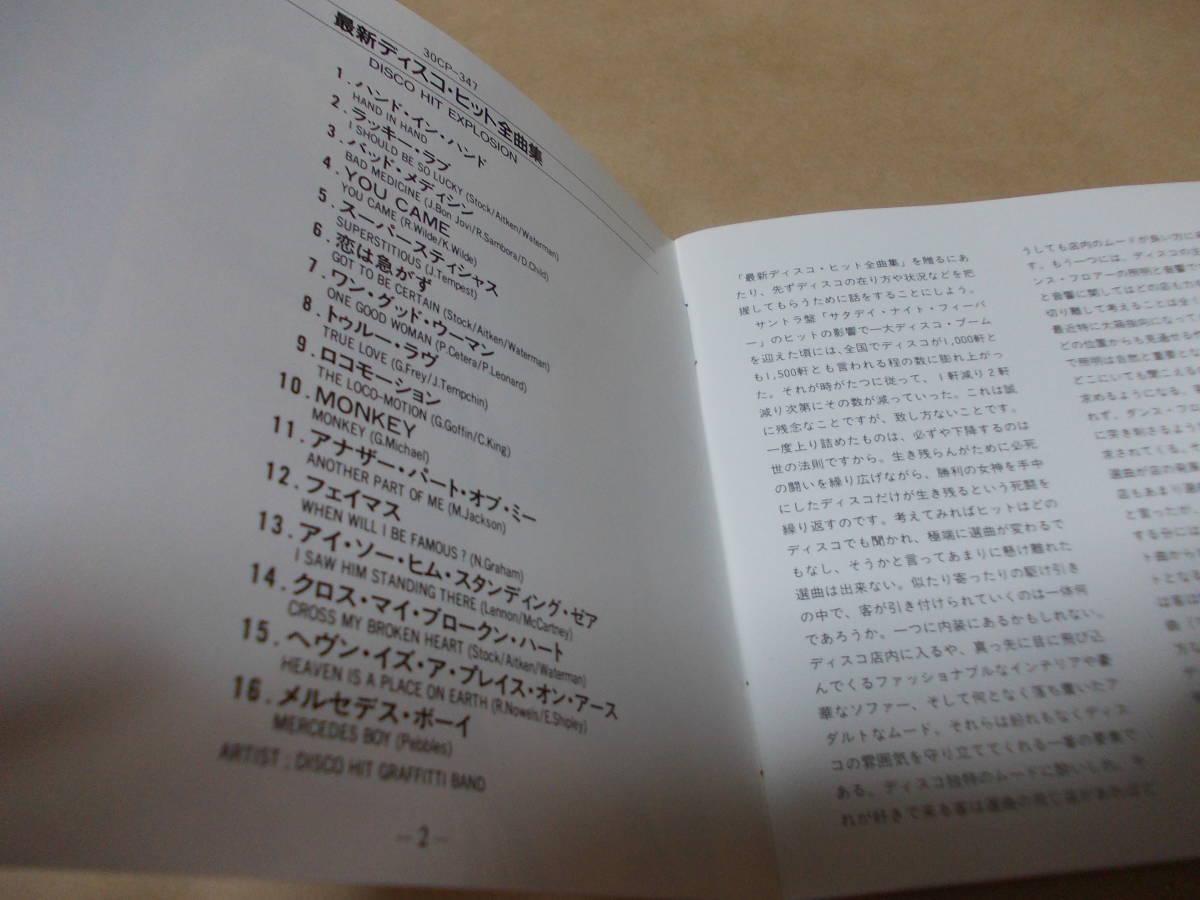 30CP-347
最新ディスコ・ヒット全曲集
DISCO HIT EXPLOSION
1. ハンド・イン・ハンド
HAND IN HAND
2. ラッキー・ラブ
I SHOULD BE SO LUCKY (Stock/Aitken/Waterman)
3. バッド・メディシン
BAD MEDICINE (J.Bon Jovi/R.Sambora/D.Child)
4. YOU CAME
YOU CAME (R.Wilde/K.Wilde)
5. スーパースティシャス
SUPERSTITIOUS (J.Tempest)
6. 恋は急がず
GOT TO BE CERTAIN (Stock/Aitken/Waterman)
7. ワン・グッド・ウーマン
ONE GOOD WOMAN (P.Cetera/P.Leonard)
8. トゥルー・ラヴ
TRUE LOVE (G.Frey/J.Tempchin)
9. ロコモーション
THE LOCO-MOTION (G.Goffin/C.King)
10. MONKEY
MONKEY (G.Michael)
11. アナザー・パート・オブ・ミー
ANOTHER PART OF ME (M.Jackson)
12. フェイマス
WHEN WILL I BE FAMOUS? (N.Graham)
13. アイ・ソー・ヒム・スタンディング・ゼア
I SAW HIM STANDING THERE (Lennon/McCartney)
14. クロス・マイ・ブロークン・ハート
CROSS MY BROKEN HEART (Stock/Aitken/Waterman)
15. ヘヴン・イズ・ア・プレイス・オン・アース
HEAVEN IS A PLACE ON EARTH (R.Nowels/E.Shipley)
16. メルセデス・ボーイ
MERCEDES BOY (Pebbles)
ARTIST : DISCO HIT GRAFFITTI BAND
—2—
「最新ディスコ・ヒット全曲集」を贈るにあ
たり、先ずディスコの在り方や状況などを把
握してもらうために話をすることにしよう。
サントラ盤「サタデイ・ナイト・フィーバ
ー」のヒットの影響で一大ディスコ・ブーム
を迎えた頃には、全国でディスコが1,000軒と
も1,500軒とも言われる程の数に膨れ上がっ
た。それが時がたつに従って、1軒減り2軒
減り次第にその数が減っていった。これは誠
に残念なことですが、致し方ないことです。
一度上り詰めたものは、必ずや下降するのは
世の法則ですから。生き残らんがために必死
の闘いを繰り広げながら、勝利の女神を手中
にしたディスコだけが生き残るという死闘を
繰り返すのです。考えてみればヒットはどの
ディスコでも聞かれ、極端に選曲が変わるで
もなし、そうかと言ってあまりに懸け離れた
選曲は出来ない。似たり寄ったりの駆け引き
の中で、客が引き付けられていくのは一体何
であろうか。一つに内装にあるかもしれない。
ディスコ店内に入るや、真っ先に目に飛び込
んでくるファッショナブルなインテリアや豪
華なソファー、そして何となく落ち着いたア
ダルトなムード、それらは紛れもなくディス
コの雰囲気を守り立ててくれる一番の要素で
ある。ディスコ独特のムードに酔いしれ、そ
れが好きで来る客は選曲の同じ店があればど
うしても店内のムードが良い方に
す。もう一つには、ディスコの
ンス・フロアーの照明と音響で
と音響に関してはどの店も力
切り離して考えることは全く
最近特に大箱指向になって、
どの位置からも見通せる
で照明は自然と重要と
どこにいても聞こえるの
求めるようになる。
れず、ダンス・フロ
に突き刺さるような
求されてくる。そ
選曲が店の発展
店もあまり選
と言ったが、
する分には
ト曲から
トとなる
は客は
曲（
方な